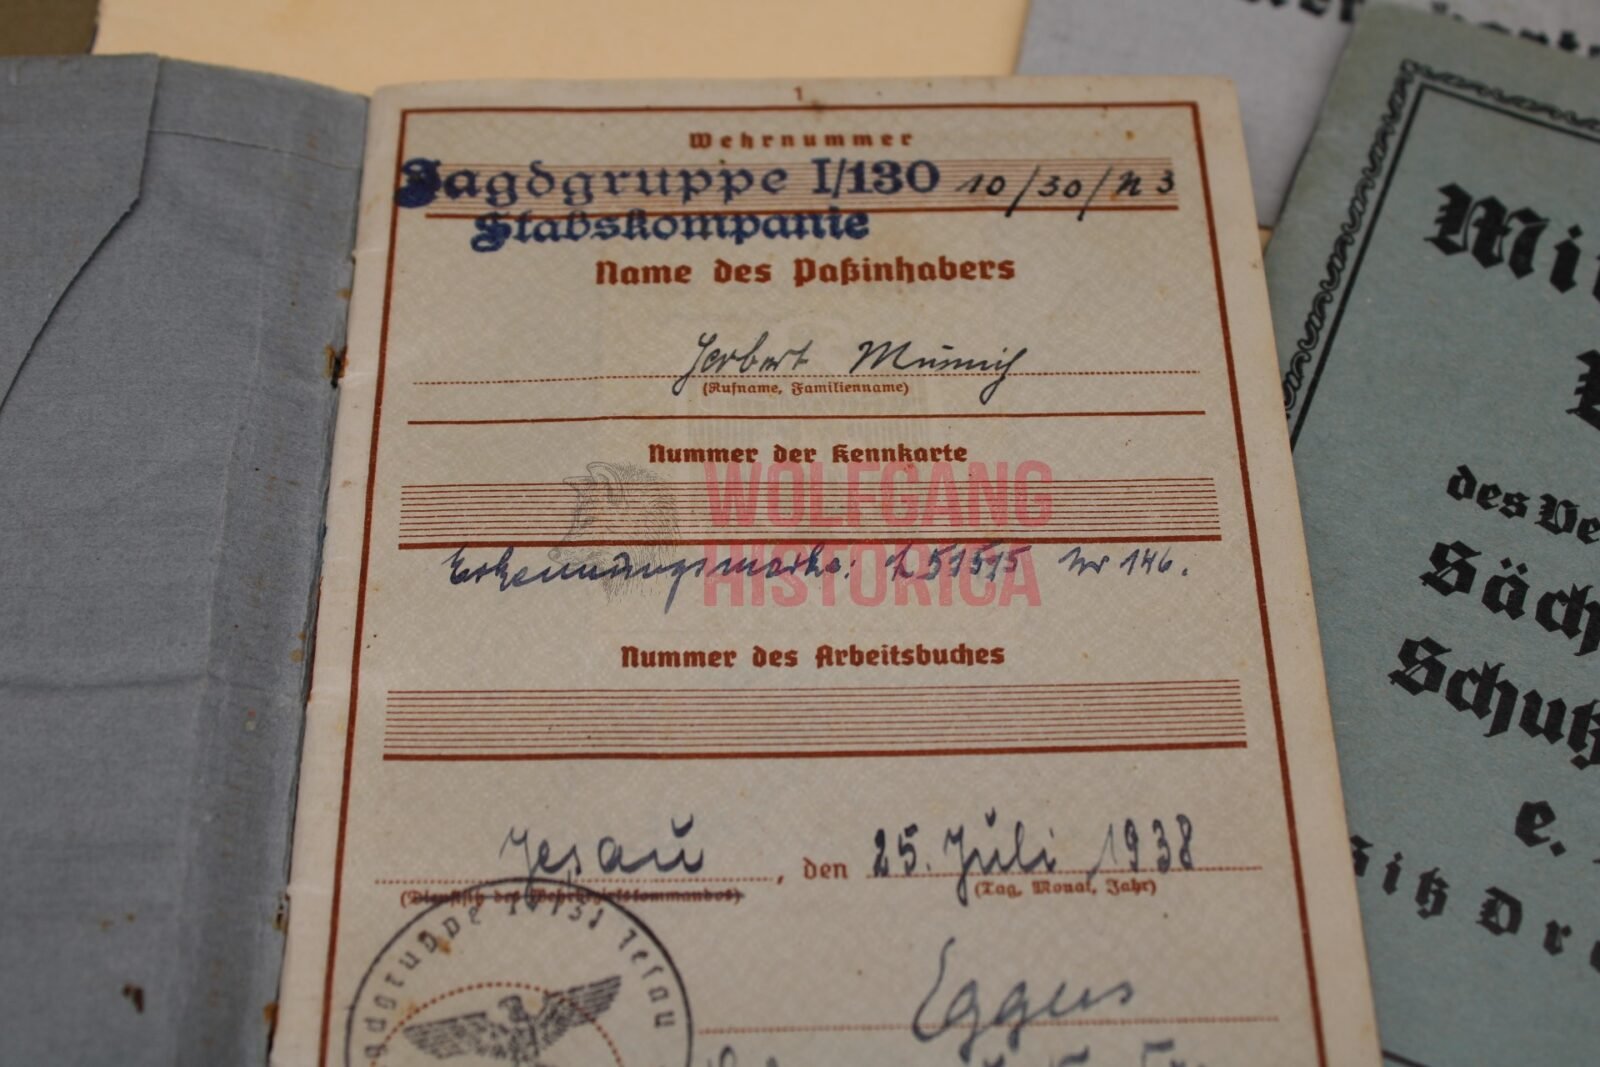 1
Wehrnummer
Jagdgruppe I/130 10/30/N 3
Stabskompanie
Name des Paßinhabers
Herbert
(Rufname, Familienname)
Nummer der Kennkarte
WOLFGANG
HISTORICA
Erkennungsmarke: 51515 Nr 146.
Nummer des Arbeitsbuches
Jesau, den 25. Juli 1938
(Dienstsitz des Wehrbezirkskommandos) (Tag, Monat, Jahr)
Jesau
Mi
des Ve
Säch
Schutz
e.
Sitz Dre